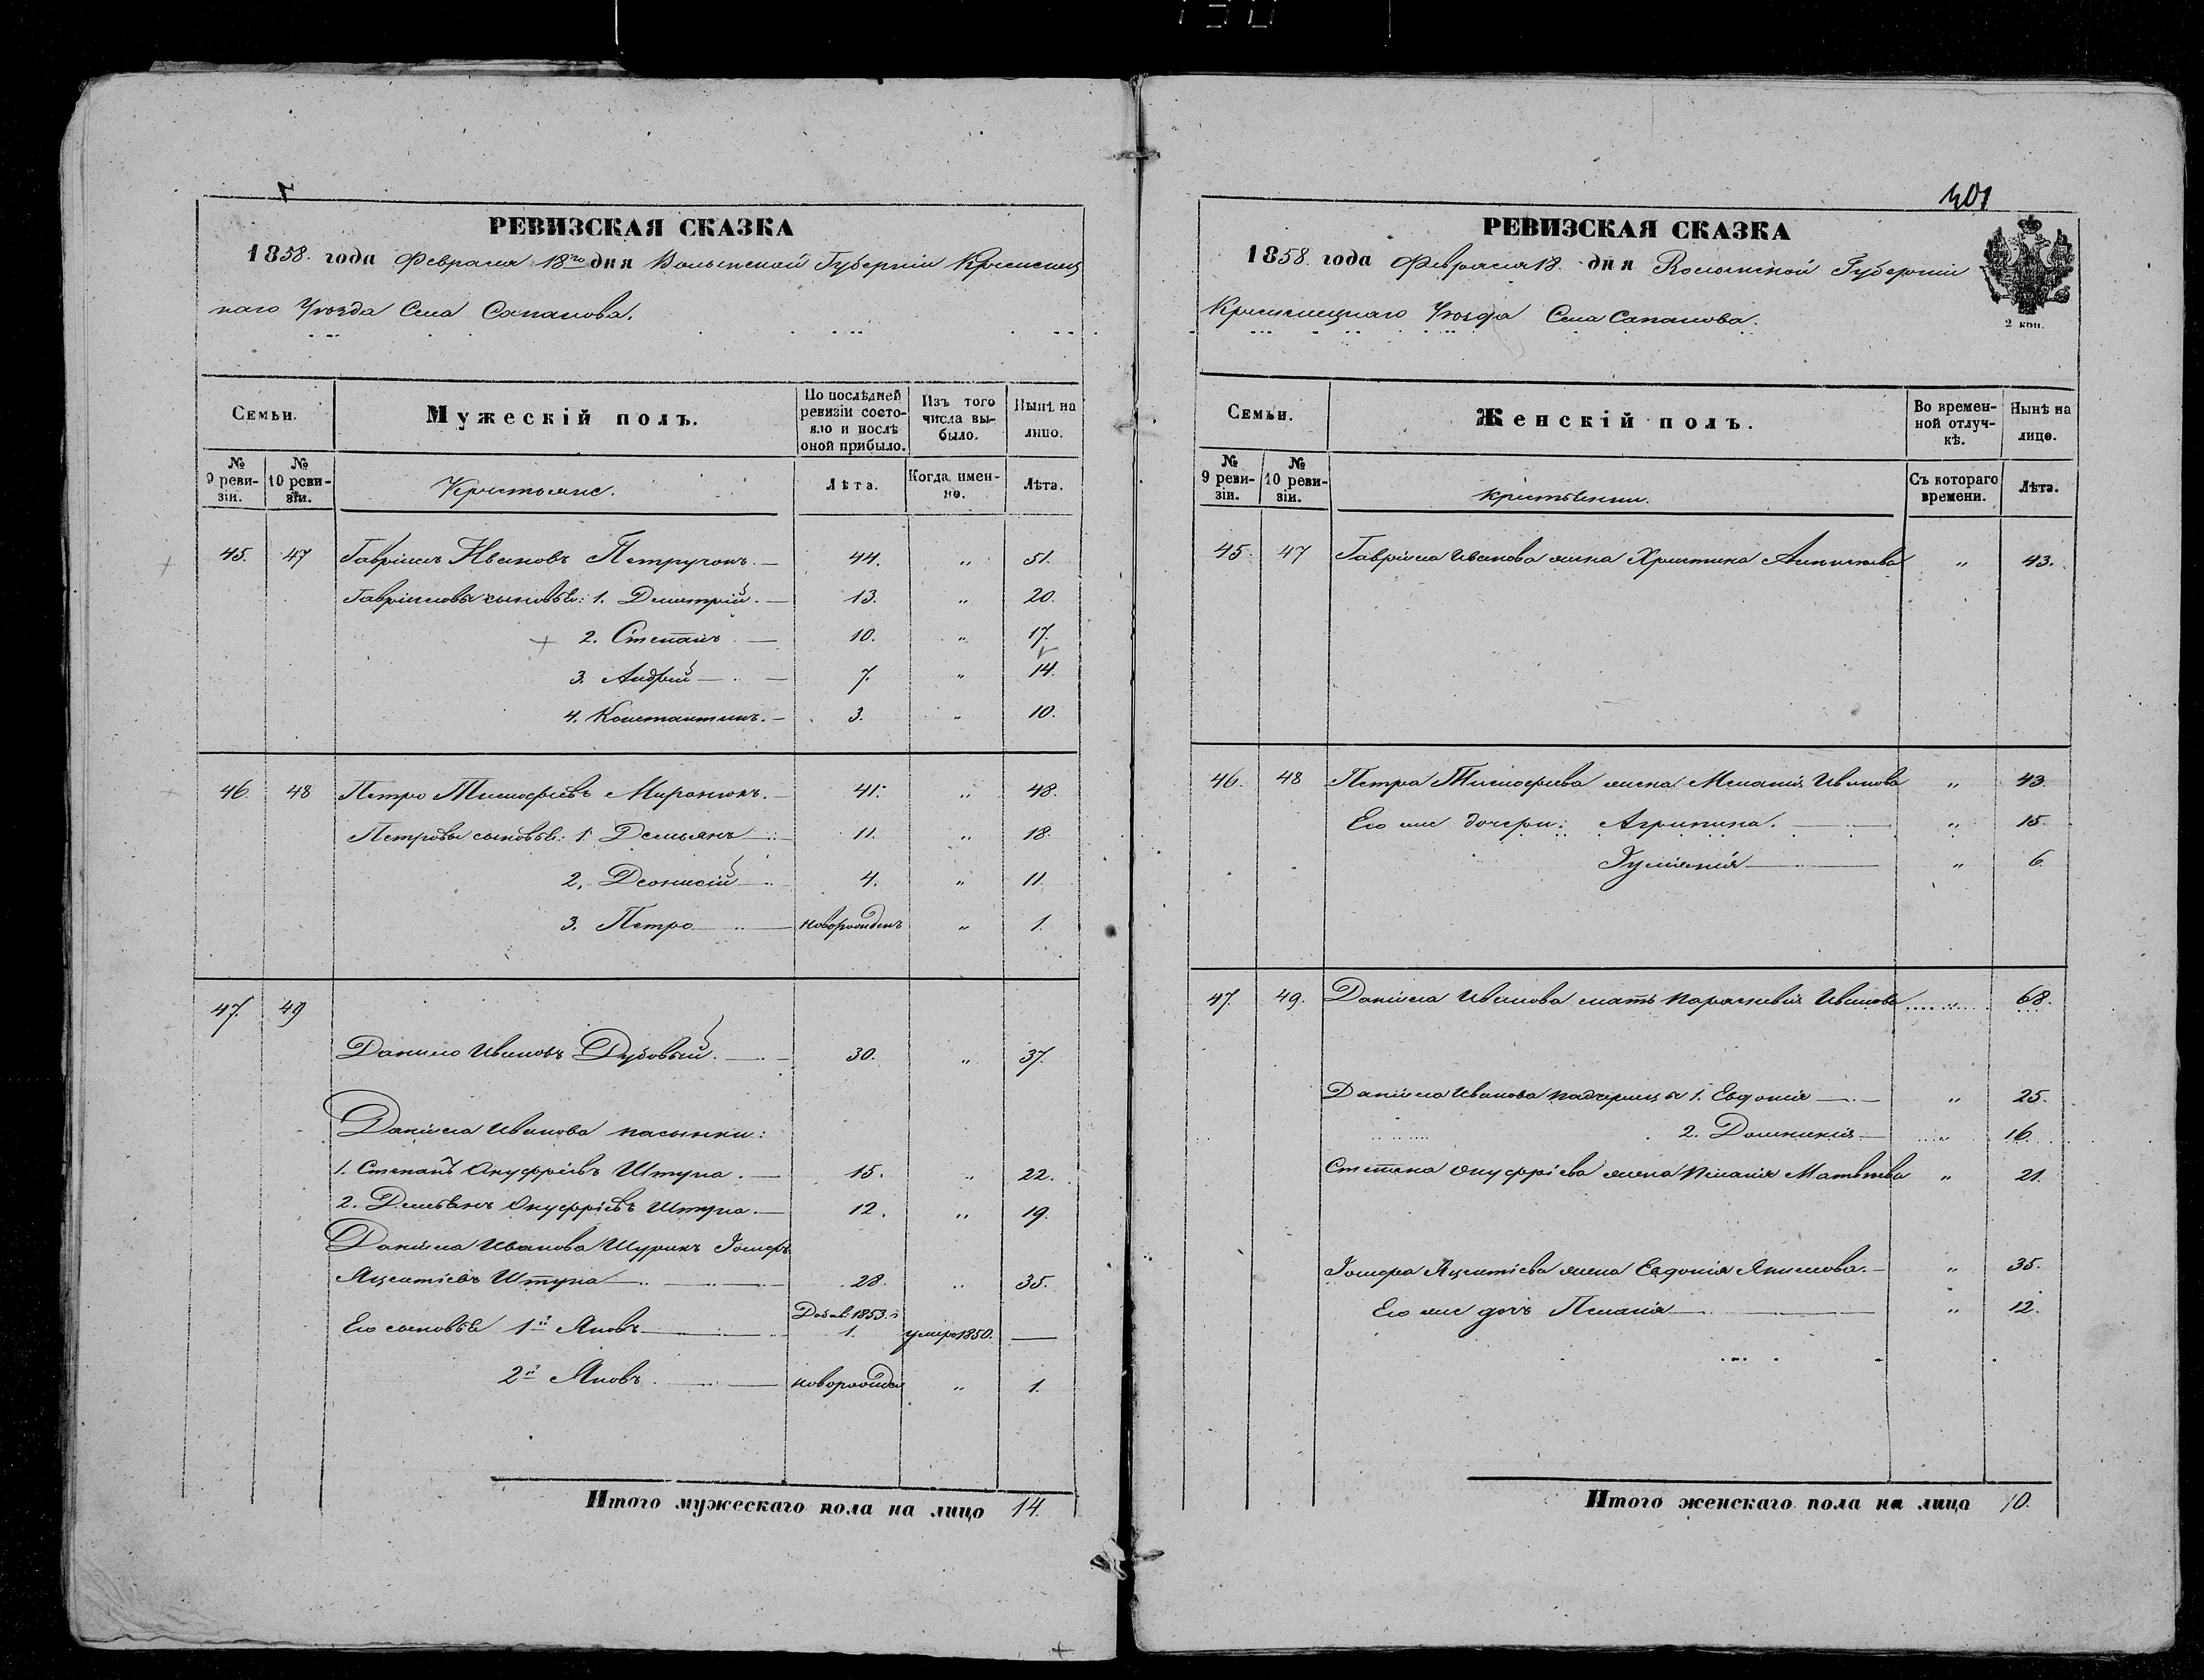 РЕВИЗСКАЯ СКАЗКА
1858. года Февраля 18го дня Волынской Губерніи Кременец
каго Уѣзда Села Сапанова.
Семьи.
Мужескій полъ.
По послѣдней ревизіи состояло и послѣ оной прибыло.
Изъ того числа выбыло.
Нынѣ на лицо.
№ 9 ревизіи.
№ 10 ревизіи.
Крестьяне.
Лѣта.
Когда именно.
Лѣта.
45. 47 Гавріилъ Ивановъ Петручокъ. 44. „ 51.
Гавріиловы сыновья: 1. Димитрій. 13. „ 20.
2. Степанъ. 10. „ 17.
3. Андрей 7. „ 14.
4. Константинъ. 3. „ 10.
46. 48 Петро Тимофѣевъ Миронюкъ. 41. „ 48.
Петровы сыновья: 1. Демьянъ 11. „ 18.
2. Деонисій 4. „ 11.
3. Петро новорожденъ „ 1.
47. 49
Данило Ивановъ Дубовый. 30. „ 37.
Даніила Иванова пасынки:
1. Степанъ Онуфріевъ Штупа. 15. „ 22.
2. Демьянъ Онуфріевъ Штупа. 12. „ 19.
Даніила Иванова Шуринъ
Штупа 28. „ 35.
Его сыновья 1й Яковъ Добав. 1853. г. 1. умеръ 1850. —
2й Яковъ. новорожден „ 1.
Итого мужескаго пола на лицо 14.
401
РЕВИЗСКАЯ СКАЗКА
1858. года Февраля 18. дня Волынской Губерніи
Кременецкаго Уѣзда Села Сапанова.
2 коп.
Семьи.
Женскій полъ.
Во временной отлучкѣ.
Нынѣ на лице.
№ 9 ревизіи.
№ 10 ревизіи.
Крестьянки.
Съ котораго времени.
Лѣта.
45. 47 Гавріила Иванова жена Христина „ 43.
46. 48 Петра Тимофѣева жена Меланія Иванова „ 43.
Его же дочери: Агрипина. „ 15.
Гуліанія „ 6.
47. 49. Даніила Иванова мать Параскевія Иванова „ 68.
Даніила Иванова падчерицы 1. Евдокія „ 25.
2. Домникія „ 16.
Степана Онуфріева жена Меланія Матвѣева „ 21.
жена Евдокія Якимова. „ 35.
Его же дочь Пелагія „ 12.
Итого женскаго пола на лицо 10.